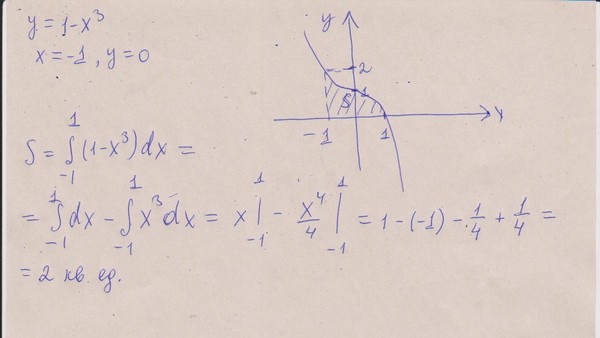 y = 1-x³
x = -1, y = 0
y
2
1
S
x
-1
1
S = ∫₋₁¹ (1-x³) dx =
= ∫₋₁¹ dx - ∫₋₁¹ x³ dx = x |₋₁¹ - x⁴/4 |₋₁¹ = 1 - (-1) - 1/4 + 1/4 =
= 2 кв. ед.